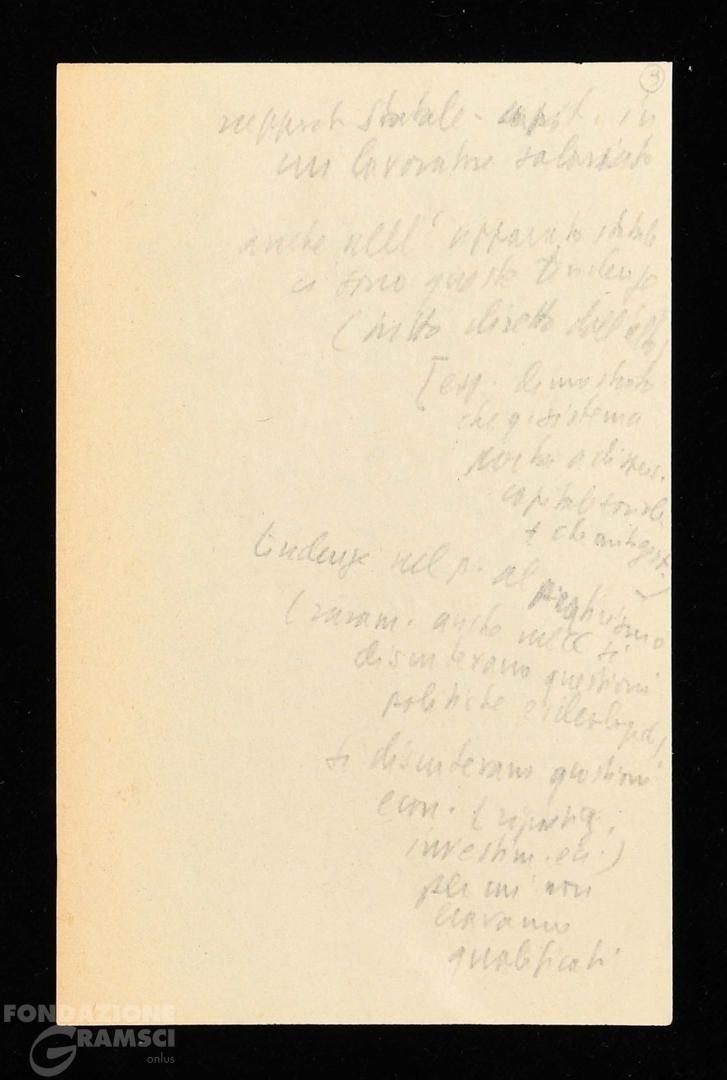 3
rapporti statale - capit. in
cui lavoratore salariato
anche nell'apparato statale
ci sono queste tendenze
(tutto diretto dall'alto)
[esp. dimostrato
che q. sistema
porta a
capitale sociale
+ che
tendenze nel p. al praticismo
(raram. anche nel CC si
discutevano questioni
politiche e ideologich)
si discutevano questioni
econ. (ripartiz.
investim. ecc.)
per cui non
eravamo
qualificati
FONDAZIONE
GRAMSCI
onlus